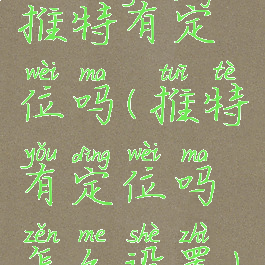 推特有定
wèi ma tuī tè
位吗(推特
yǒu dìng wèi ma
有定位吗
zěn me shè zhì
怎么设置)